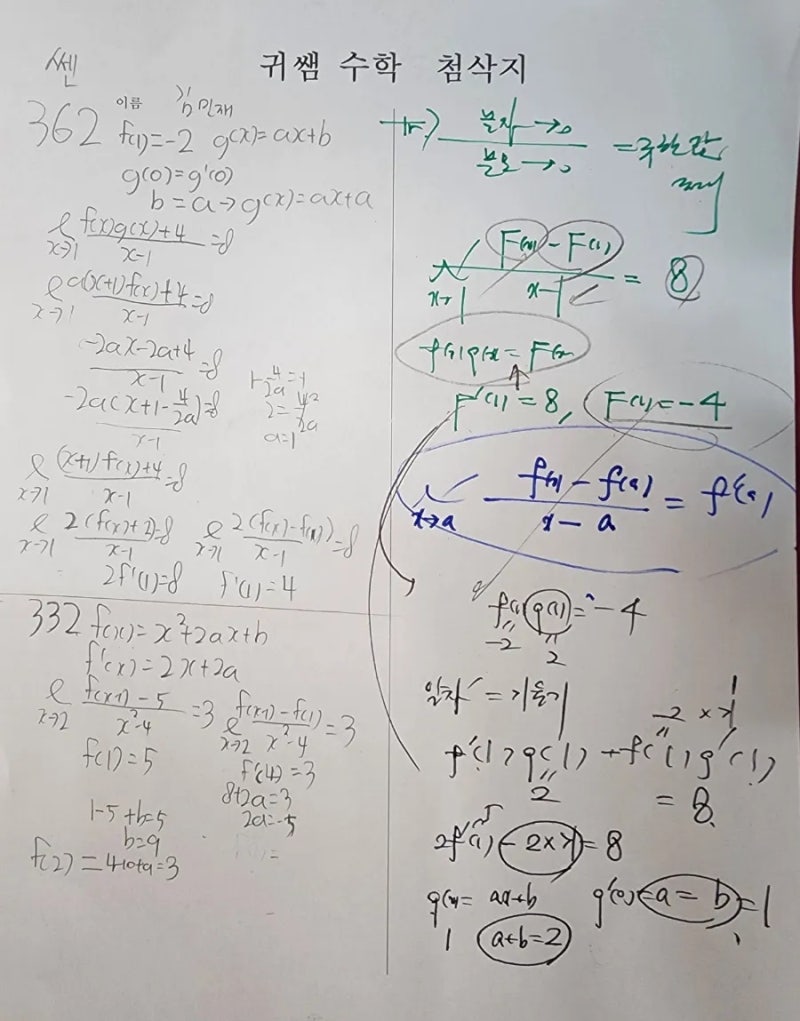 쎈
귀쌤 수학 첨삭지
이름 김민재
362 f(1)=-2 g(x)=ax+b
g(0)=g'(0)
b=a→g(x)=ax+a
ℓ x→1 f(x)g(x)+4 / x-1 =8
ℓ x→1 a(x+1)f(x)+4 / x-1 =8
-2ax-2a+4 / x-1 =8
-2a(x+1-4/2a) / x-1 =8
1-4/2a=-1
2=4/2a
a=1
ℓ x→1 (x+1)f(x)+4 / x-1 =8
ℓ x→1 2(f(x)+2) / x-1 =8
ℓ x→1 2(f(x)-f(1)) / x-1 =8
2f'(1)=8 f'(1)=4
332 f(x)=x²+2ax+b
f'(x)=2x+2a
ℓ x→2 f(x-1)-5 / x²-4 =3
ℓ x→2 f(x-1)-f(1) / x²-4 =3
f(1)=5
f'(4)=3
8+2a=3
2a=-5
1-5+b=5
b=9
f(2)=4-10+9=3
분자→0 / 분모→0 =극한값
존재
x→1 F(x)-F(1) / x-1 = 8
f(x)g(x)=F(x)
F'(1)=8, F(1)=-4
x→a f(x)-f(a) / x-a = f'(a)
f(1)g(1)=-4
-2 2
일차 = 기울기
1
f'(1)g(1)+f(1)g'(1)
2
=8
2f'(1)-2×1=8
g(x)=ax+b g'(0)=a=b=1
1 a+b=2